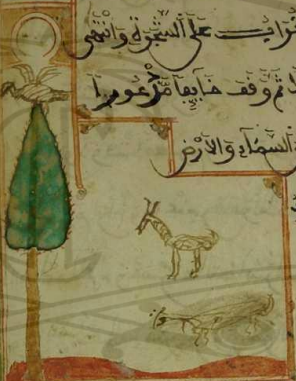 على الشجرة وانتهى
ثم وقف خايفا مذعورا
السماء والارض